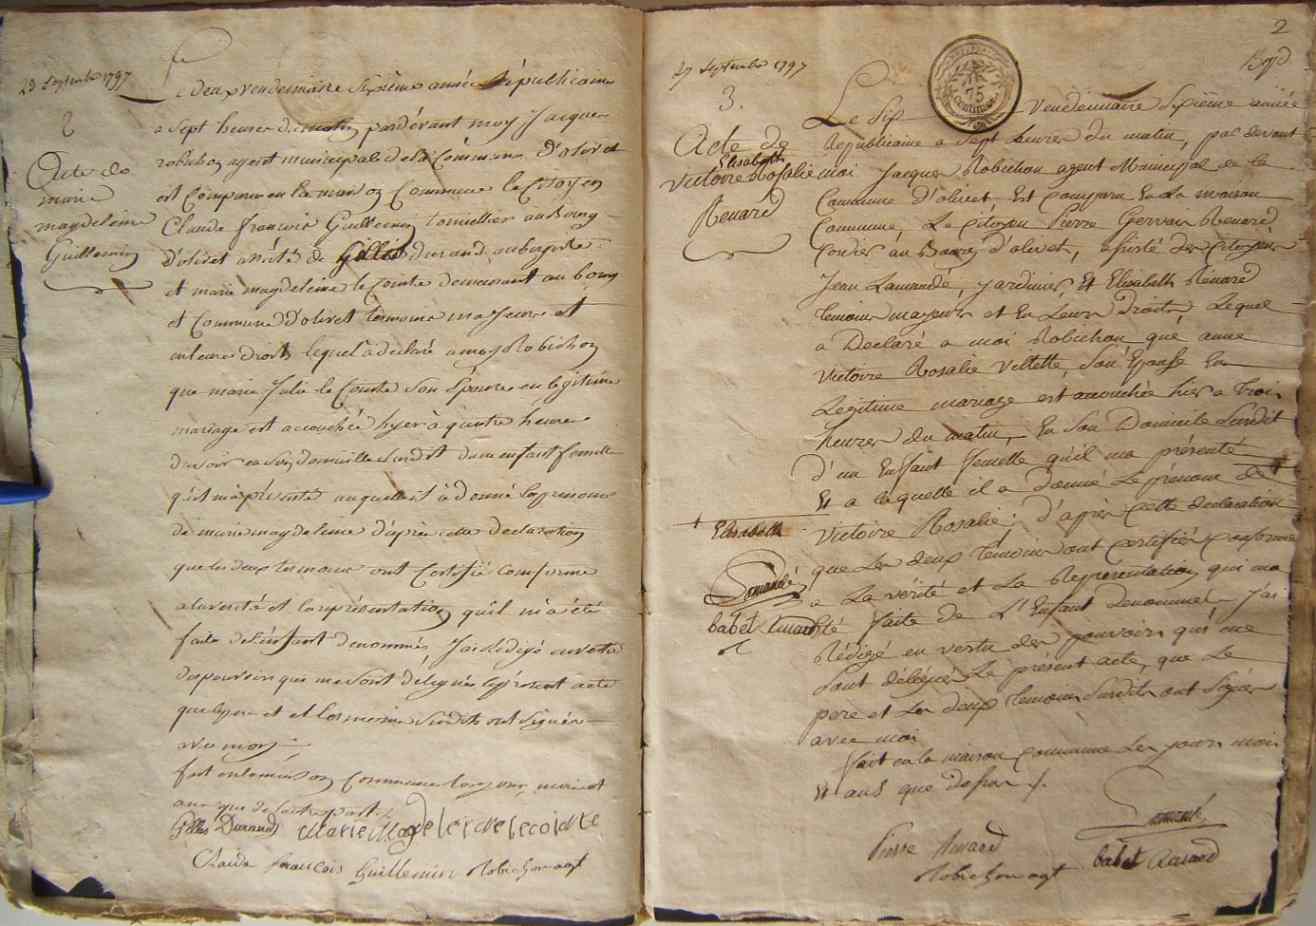 23 Septembre 1797
2
Acte de
marie
magdeleine
Guillemin
Le deux vendemiaire sixième année Républicaine
a sept heures du matin pardevant moy Jacques
robichon agent municipal de la Commune d'olivet
est Comparu en la maison Commune le Citoyen
Claude françois Guillemin tonnellier au Bourg
D'olivet assisté de Gilles durand aubergiste
et marie magdeleine le Cointe demeurant au bourg
et Commune D'olivet temoins majeurs et
en leurs droits lequel à déclaré a moy Robichon
que marie Julie le Cointe son Epouse en legitime
mariage est accouchée hyer à quatre heures
du soir en son domicille susdit d'un enfant femelle
qu'il m'a présenté auquel il à donné les prenoms
de marie magdeleine d'après cette declaration
que les deux temoins ont Certifié Conforme
a la verité et la représentation qu'il m'a été
faite de l'enfant denommés J'ai rédigé en vertu
des pouvoirs qui me sont délégués le présent acte
que le pere et les temoins susdits ont signés
avec moy
fait en la maison Commune les jour, mois et
an que de l'autre part
Gilles Durand Marie Magdeleine lecointe
Claude francois Guillemin Robichon agt
2
27 Septembre 1797
3.
Acte de
Elisabeth
Victoire Rosalie
Renard
15
centimes
Le Six Vendemiaire Sixième année
Républicaine a Sept heures du matin, par devant
moi Jacques Robichon agent Municipal de la
Commune d'olivet, Est comparu En La maison
Commune, Le Citoyen Pierre Gervais Renard,
au Bourg d'olivet, assisté des Citoyens
Jean Lamandé, jardinier, Et Elisabeth Rénard
temoins majeurs et En Leurs Droits, Lequel
a Déclaré a moi Robichon que anne
Victoire Rosalie Villette, Son Epouse En
Légitime mariage est accouchée hier a Trois
heures du matin, En Son Domicile Susdit
d'un Enfant femelle qu'il ma présenté
Et a laquelle il a Donné Le prénom de +
Victoire Rosalie; d'après Cette declaration
que Les deux témoins ont certifiés conforme
a La vérité et La Représentation qui ma
été faite de L'Enfant denommé J'ai
Rédigé en vertu des pouvoirs qui me
Sont délégués Le présent acte, que Le
pere et Les deux temoins Susdits ont Signés
avec moi
fait en la maison commune Les jours mois
Et ans que dessus
+ Elisabeth
Lamandé
babet Renard
Lamandé
Pierre Renard
babet Renard
Robichon agt